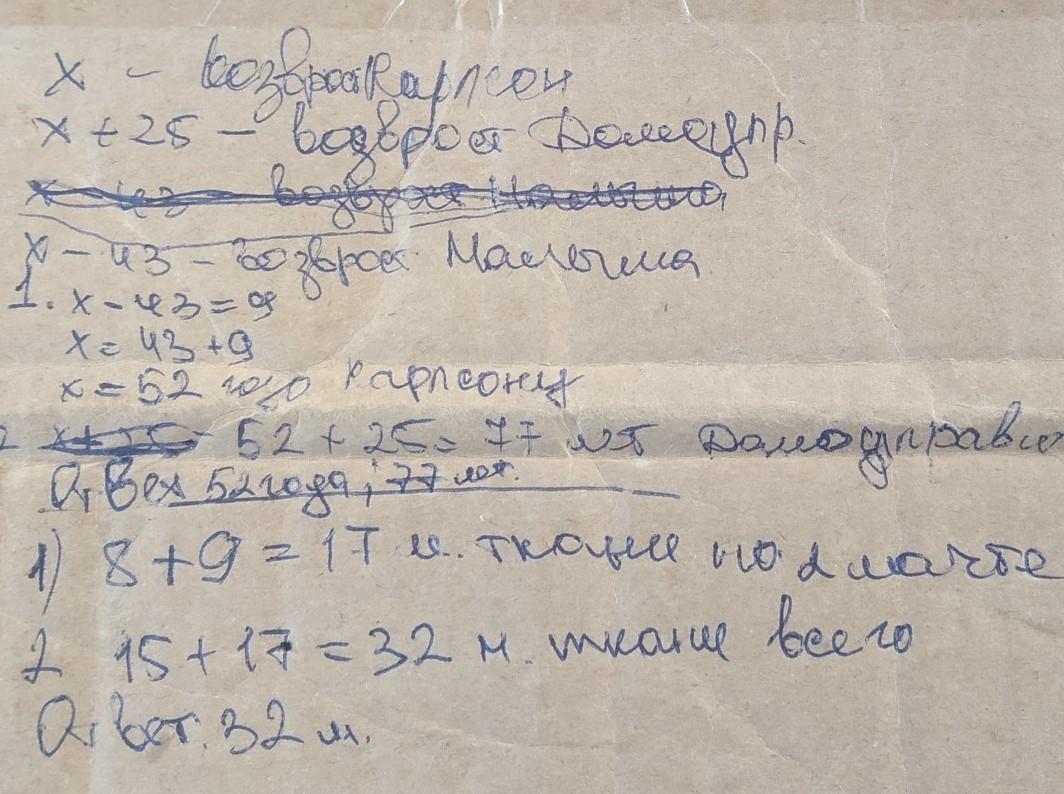 x - возрост Карлсон
x + 25 - возрост Домоупр.
x - 43 - возрост Малыша
x - 43 - возрост Малыша
1. x - 43 = 9
x = 43 + 9
x = 52 года Карлсону
2 x + 25 52 + 25 = 77 лет Домоуправит
Ответ 52 года; 77 лет.
1) 8 + 9 = 17 м. ткани на 2 мачте
2 15 + 17 = 32 м. ткани всего
Ответ. 32 м.